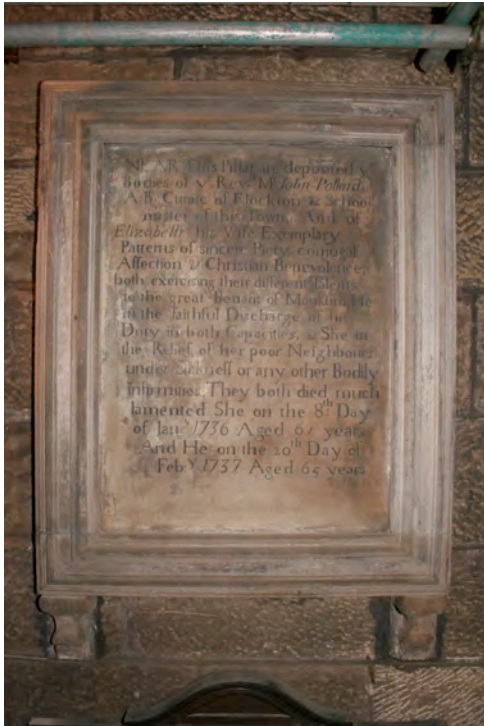 NEAR This Pillar are deposited yᵉ
Bodies of yᵉ Revᵈ Mʳ John Pollard,
A.B. Curate of Flockton & School
master of this Town, And of
Elizabeth his Wife Exemplary
Patterns of sincere Piety conjugal
Affection & Christian Benevolence,
both exercising their different Talents
to the great Benefit of Mankind He
in the faithful Discharge of his
Duty in both Capacities, & She in
the Relief of her poor Neighbours
under Sickneſs or any other Bodily
Infirmities. They both died much
lamented She on the 8ᵗʰ Day
of Janʸ 1736 Aged 61 years
And He on the 20ᵗʰ Day of
Febʸ 1737 Aged 65 years